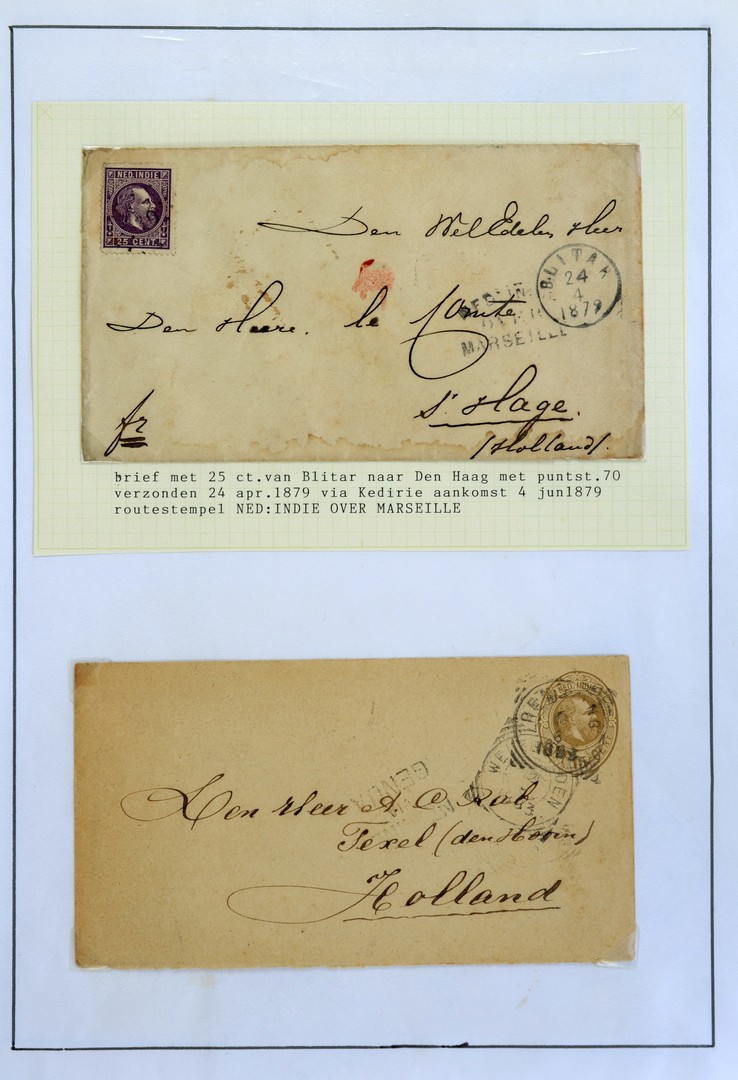 NED. INDIE
25 CENT.
Den WelEdelen Heer
BLITAR
24
4
1879
Den Heere. le Comte
MARSEILLE
s' Hage.
fr
(Holland).
brief met 25 ct.van Blitar naar Den Haag met puntst.70
verzonden 24 apr.1879 via Kedirie aankomst 4 jun1879
routestempel NED:INDIE OVER MARSEILLE
NED. INDIE
GENUA
Den Heer A. C. Kal
Texel (den Hoorn)
Holland